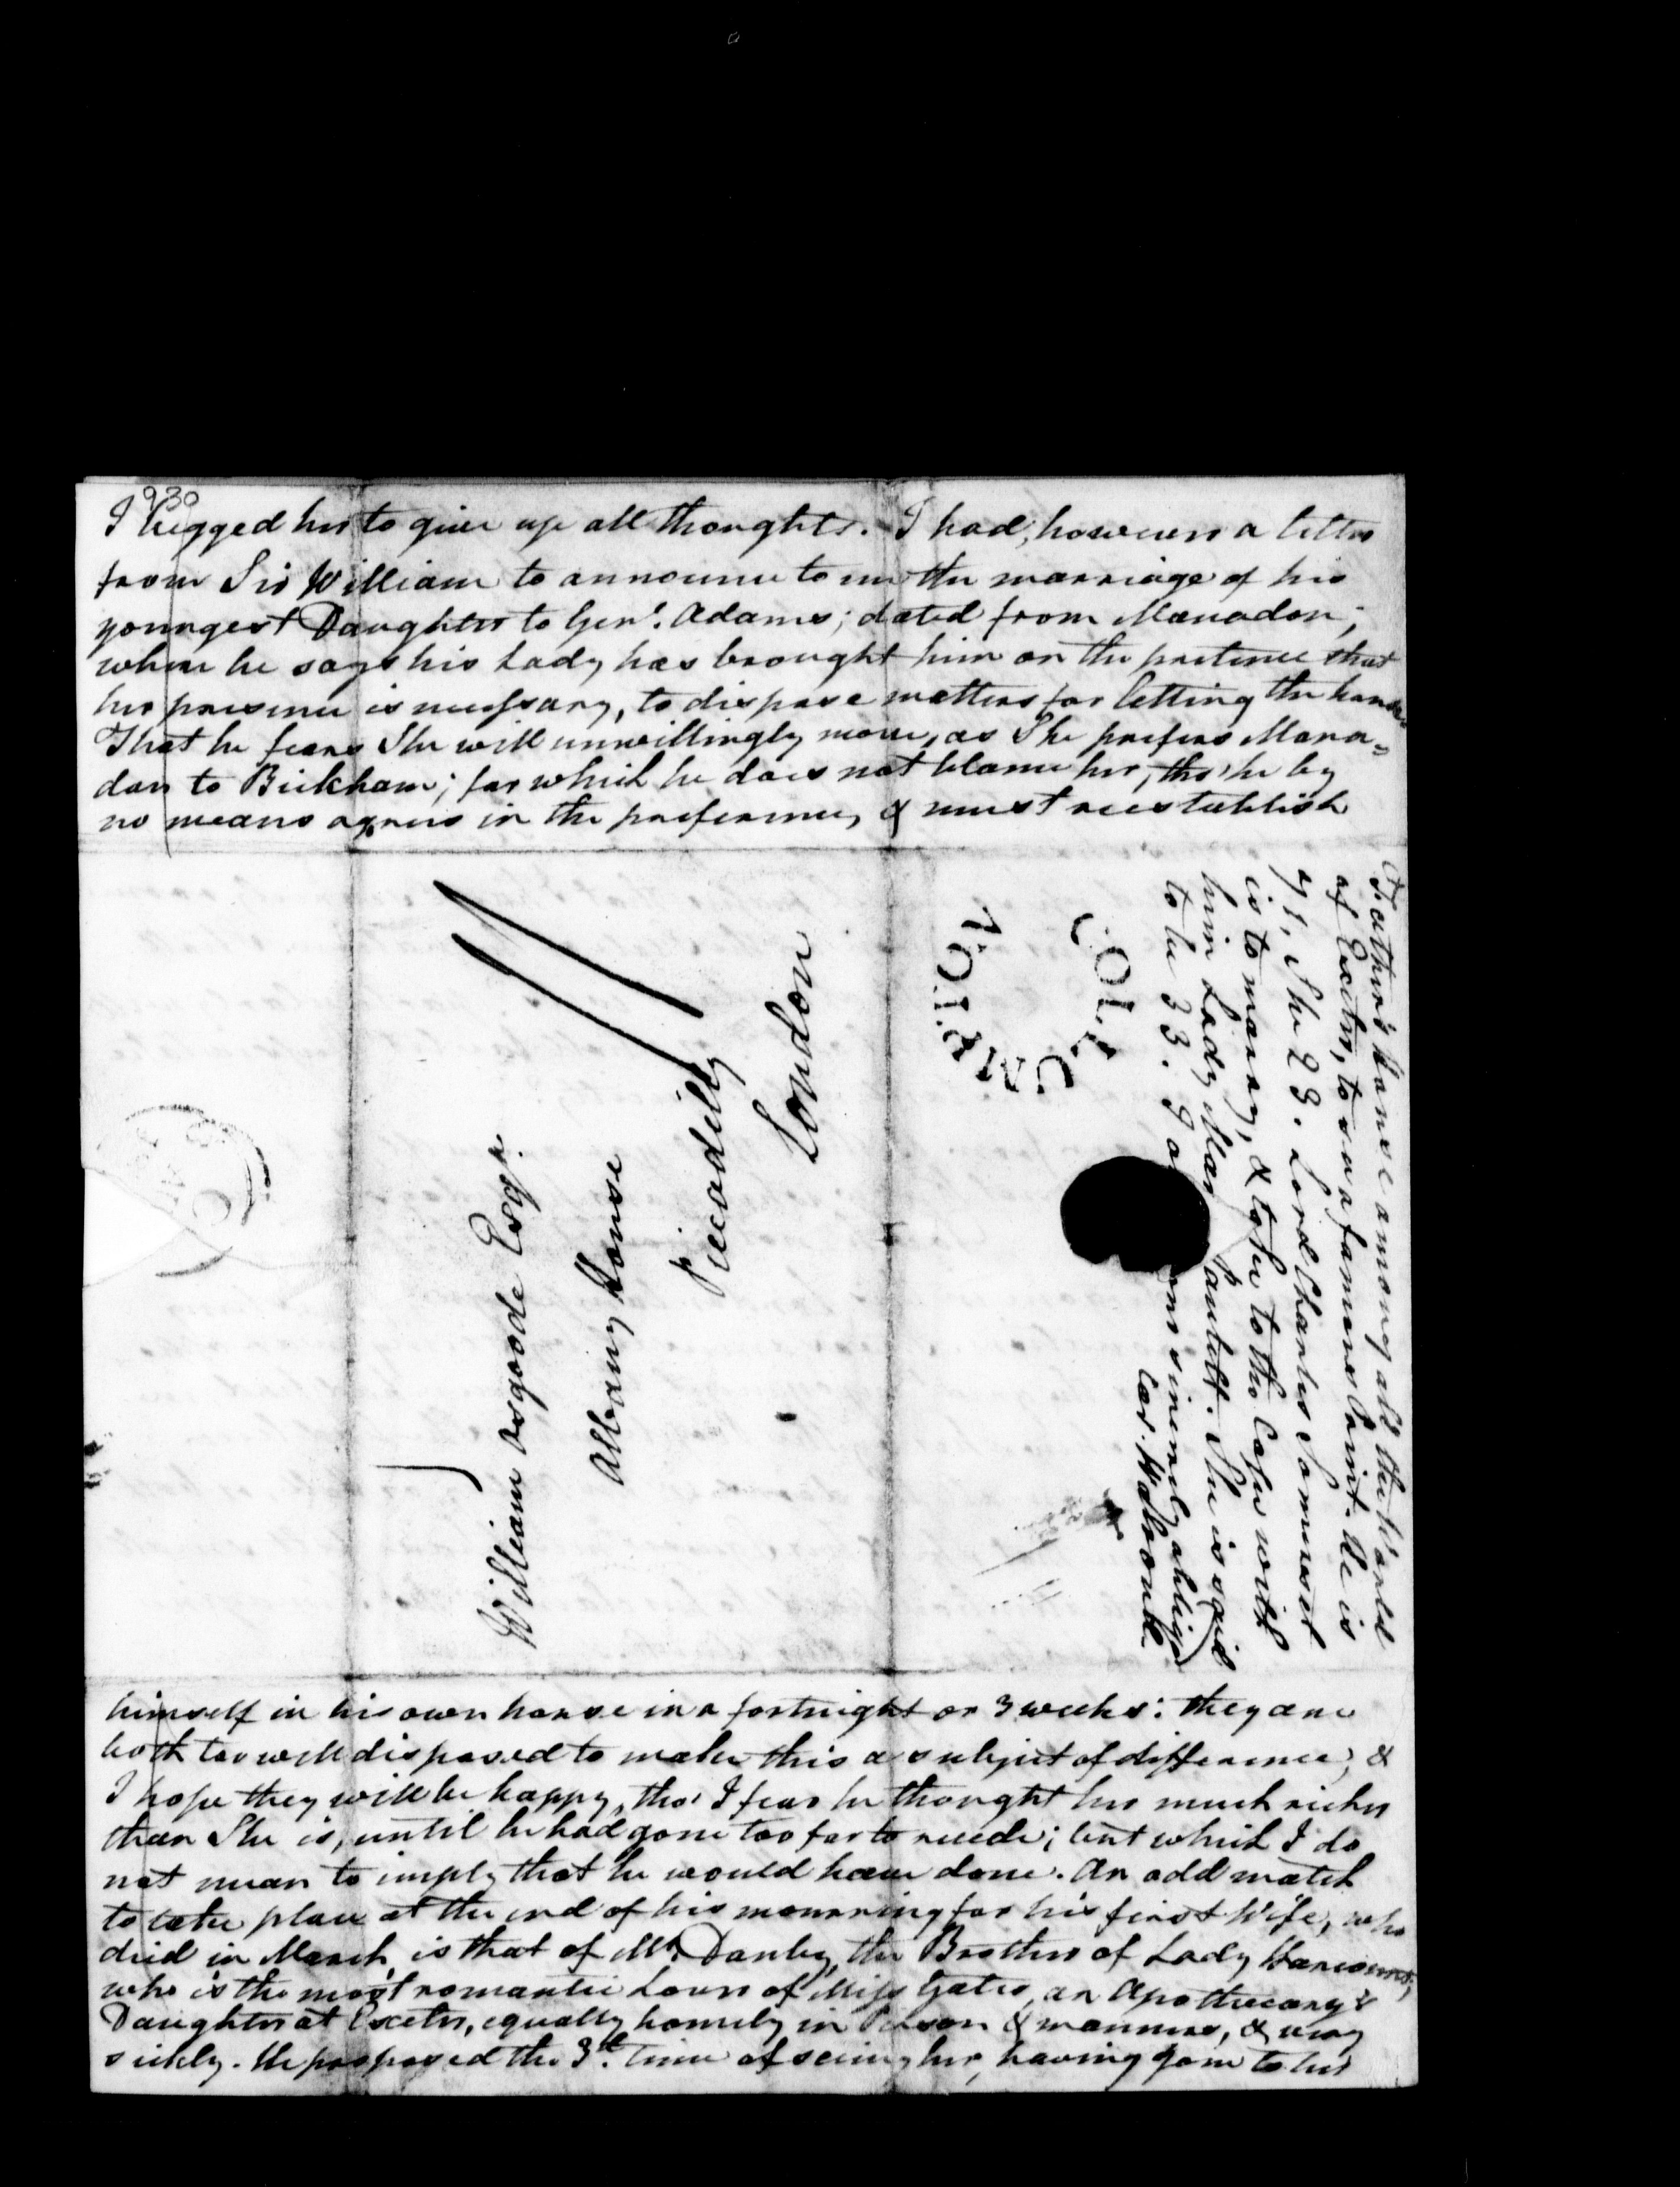 930
I begged her to give up all thoughts. I had, however a letter
from Sir William to announce to me the marriage of his
youngest Daughter to Genl. Adams; dated from Manadon;
where he says his Lady has brought him on the pretence that
her presence is necessary, to dispose matters for letting the house.
That he fears She will unwillingly move, as She prefers Mana=
don to Bickham; for which he does not blame her, tho' he by
no means agrees in the preference, & must reestablish
himself in his own house in a fortnight or 3 weeks: they are
both too well disposed to make this a subject of difference; &
I hope they will be happy, tho' I fear he thought her much richer
than She is, until he had gone too far to recede; but which I do
not mean to imply that he would have done. An odd match
to take place at the end of his mourning for his first Wife, who
died in March, is that of Mr. Danby, the Brother of Lady Harcourt,
who is the most romantic Lover of Miss Gates, an Apothecary's
Daughter at Exeter, equally homely in Person & manners, & very
sickly. He proposed the 3d. time of seeing her, having gone to her
Father's house among all the World
of Exeter, to see a famous Paint. He is
71, She 28. Lord Charles Somerset
is to marry, & to the Cape with
him Lady Mary Paulett. She is said
to be 33.
sincerely obliged
William Osgoode Esqr.
Albany House
Piccadilly
London
COLLUMPTON